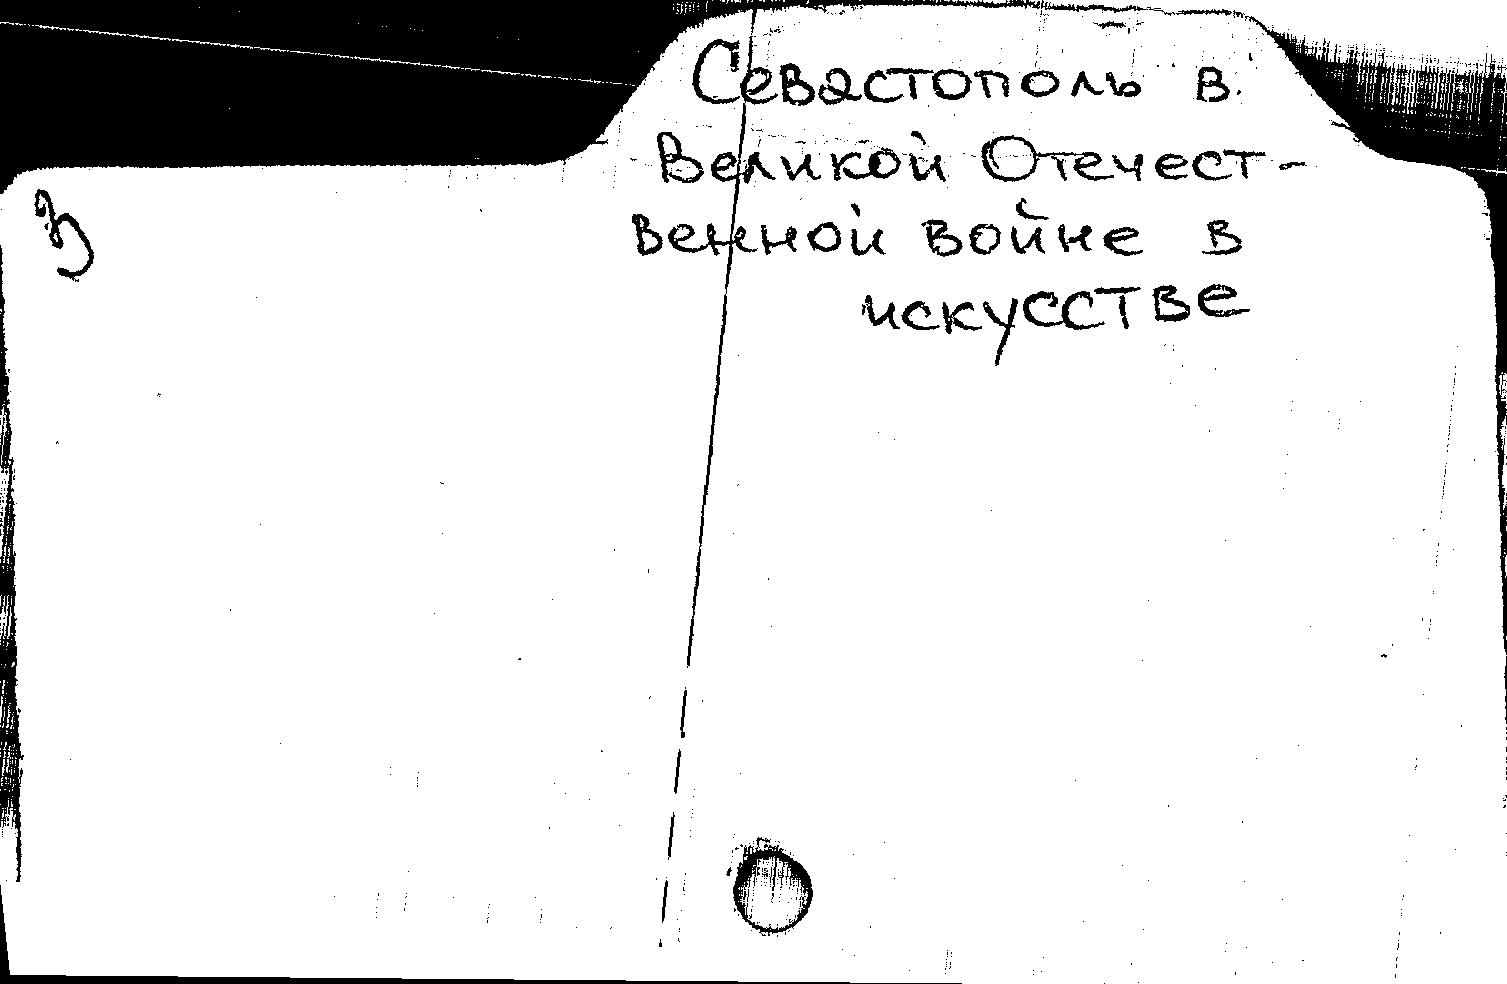 Севастополь в
Великой Отечест-
венной войне в
искусстве
3